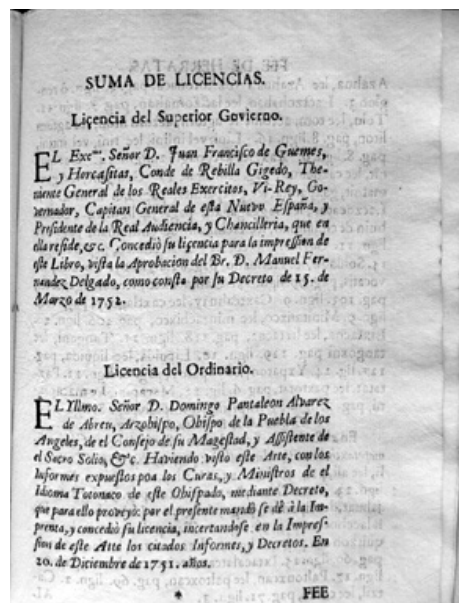 SUMA DE LICENCIAS.
Licencia del Superior Govierno.
EL Excmo. Señor D. Juan Francisco de Guemes,
y Horcasitas, Conde de Rebilla Gigedo, The-
niente General de los Reales Exercitos, Vi-Rey, Go-
vernador, Capitan General de esta Nueva España, y
Presidente de la Real Audiencia, y Chancilleria, que en
ella reside, &c. Concediò su licencia para la impression de
este Libro, vista la Aprobacion del Br. D. Manuel Fer-
nandez Delgado, como consta por su Decreto de 15. de
Marzo de 1752.
Licencia del Ordinario.
EL Yllmo. Señor D. Domingo Pantaleon Alvarez
de Abreu, Arzobispo, Obispo de la Puebla de los
Angeles, de el Consejo de su Magestad, y Assistente de
el Sacro Solio, &c. Haviendo visto este Arte, con los
Informes expuestos poa los Curas, y Ministros de el
Idioma Totonaco de este Obispado, mediante Decreto,
que para ello proveyò: por el presente mandò se dè à la Im-
prenta, y concediò su licencia, incertandose en la Impres-
sion de este Arte los citados Informes, y Decretos. En
20. de Diciembre de 1751. años.
* FEE